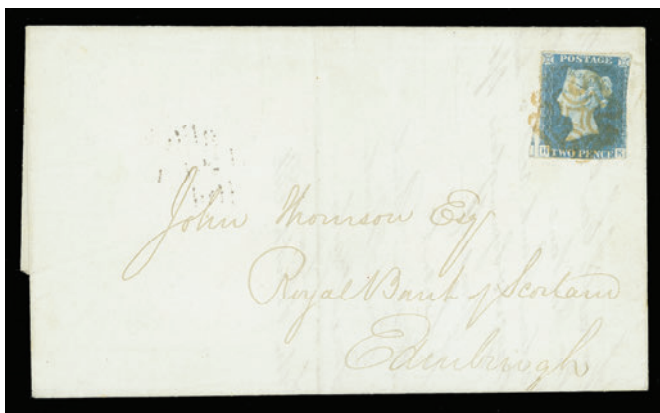 POSTAGE
H TWO PENCE K
John Thomson Esq
Royal Bank of Scotland
Edinburgh